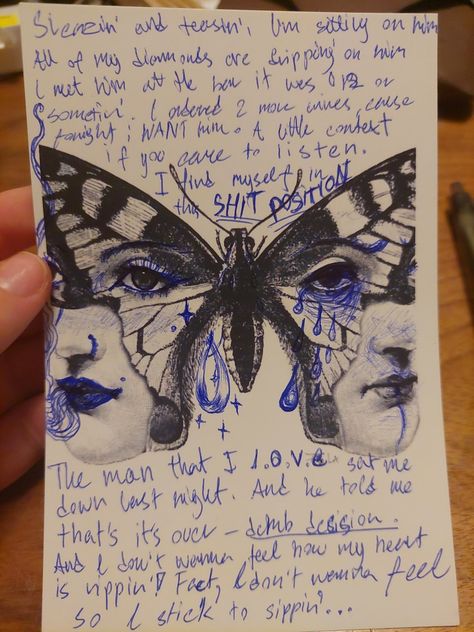 Sleazin' and teasin', I'm sitting on him
All of my diamonds are dripping on him
I met him at the bar it was 12 or
somethin'. I ordered 2 more wines, cause
tonight i WANT him. A little context
if you care to listen.
I find myself in
the SHIT POSITION
The man that I l.o.v.e sat me
down last night. And he told me
that's it's over - dumb desision.
And I don't wanna feel how my heart
is rippin'! Fact, I don't wanna feel
so I stick to sippin'...